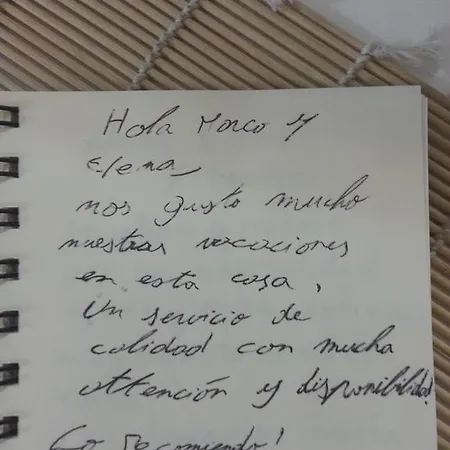 Hola Marco y
Elena
nos gusto mucho
nuestras vacaciones
en esta casa,
Un servicio de
calidad con mucha
attención y disponibilidad!
Lo recomiendo!